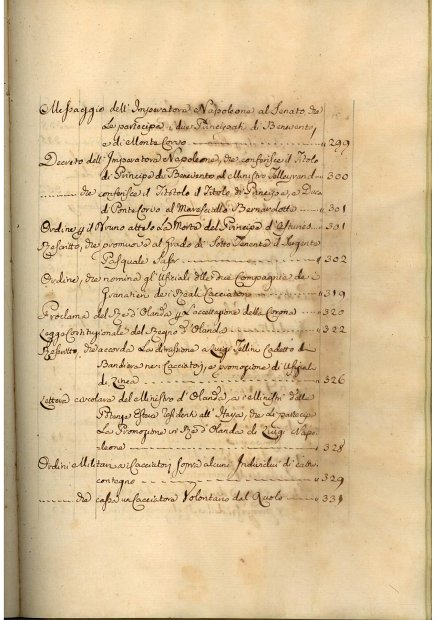 Messaggio dell' Imperatore Napoleone al Senato che
Le partecipa i due Principati di Benevento,
e di Monte Corvo " 299
Decreto dell' Imperatore Napoleone, che conferisce il Titolo
di Principe di Benevento al Ministro Talleyrand " 300
che conferisce il Titolo il Titolo di Principe, e Duca
di Ponte Corvo al Maresciallo Bernardotte " 301
Ordine il Bruno attesa La Morte del Principe d'Asturies " 301
Rescritto, che promuove al Grado di Sotto Tenente il Sergente
Pasquale " 302
Ordine, che nomina gl' Ufiziali delle due Compagnie de
Granatieri de i Reali Cacciatori " 319
Proclama del Re d' Olanda L'accettazione della Corona " 320
Legge Costituzionale del Regno d' Olanda " 322
Rescritto, che accorda La dimissione a Luigi Tellini Cadetto di
Bandiera nei Cacciatori, e promozione di Ufizial
di Linea " 326
Lettera circolare del Ministro d' Olanda, a i Ministri delle
Potenze Estere residenti all' Haya, che gli partecipa
La Promozione in Re d' Olanda di Luigi Napo-
leone " 328
Ordini Militari a i Cacciatori, sopra alcuni Individui di catt:
contegno " 329
che cassa un Cacciatore Volontario dal Ruolo " 331